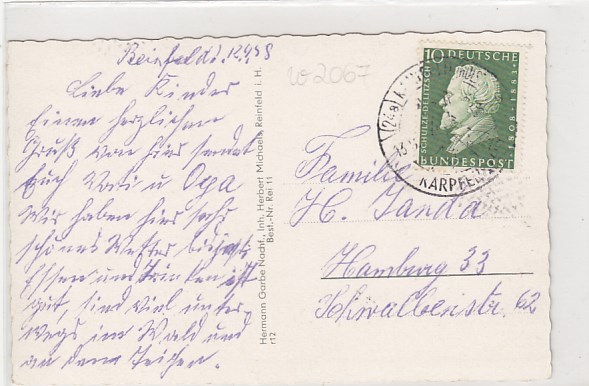 Reinfeld 12.9.58
Liebe Kinder
Einen herzlichen
Gruß von hier sendet
Euch Vati u Opa
Wir haben hier sehr
schönes Wetter
Essen und Trinken ist
gut, sind viel unter-
wegs im Wald und
an den Teichen.
Hermann Garbe Nachf., Inh. Herbert Michaels, Reinfeld i. H.
Best.-Nr. Rei 11
r12
102067
10 DEUTSCHE
SCHULZE-DELITZSCH
1808-1883
BUNDESPOST
(24a)
KARPFEN
Familie
H. Janda
Hamburg 33
Schwalbenstr. 62